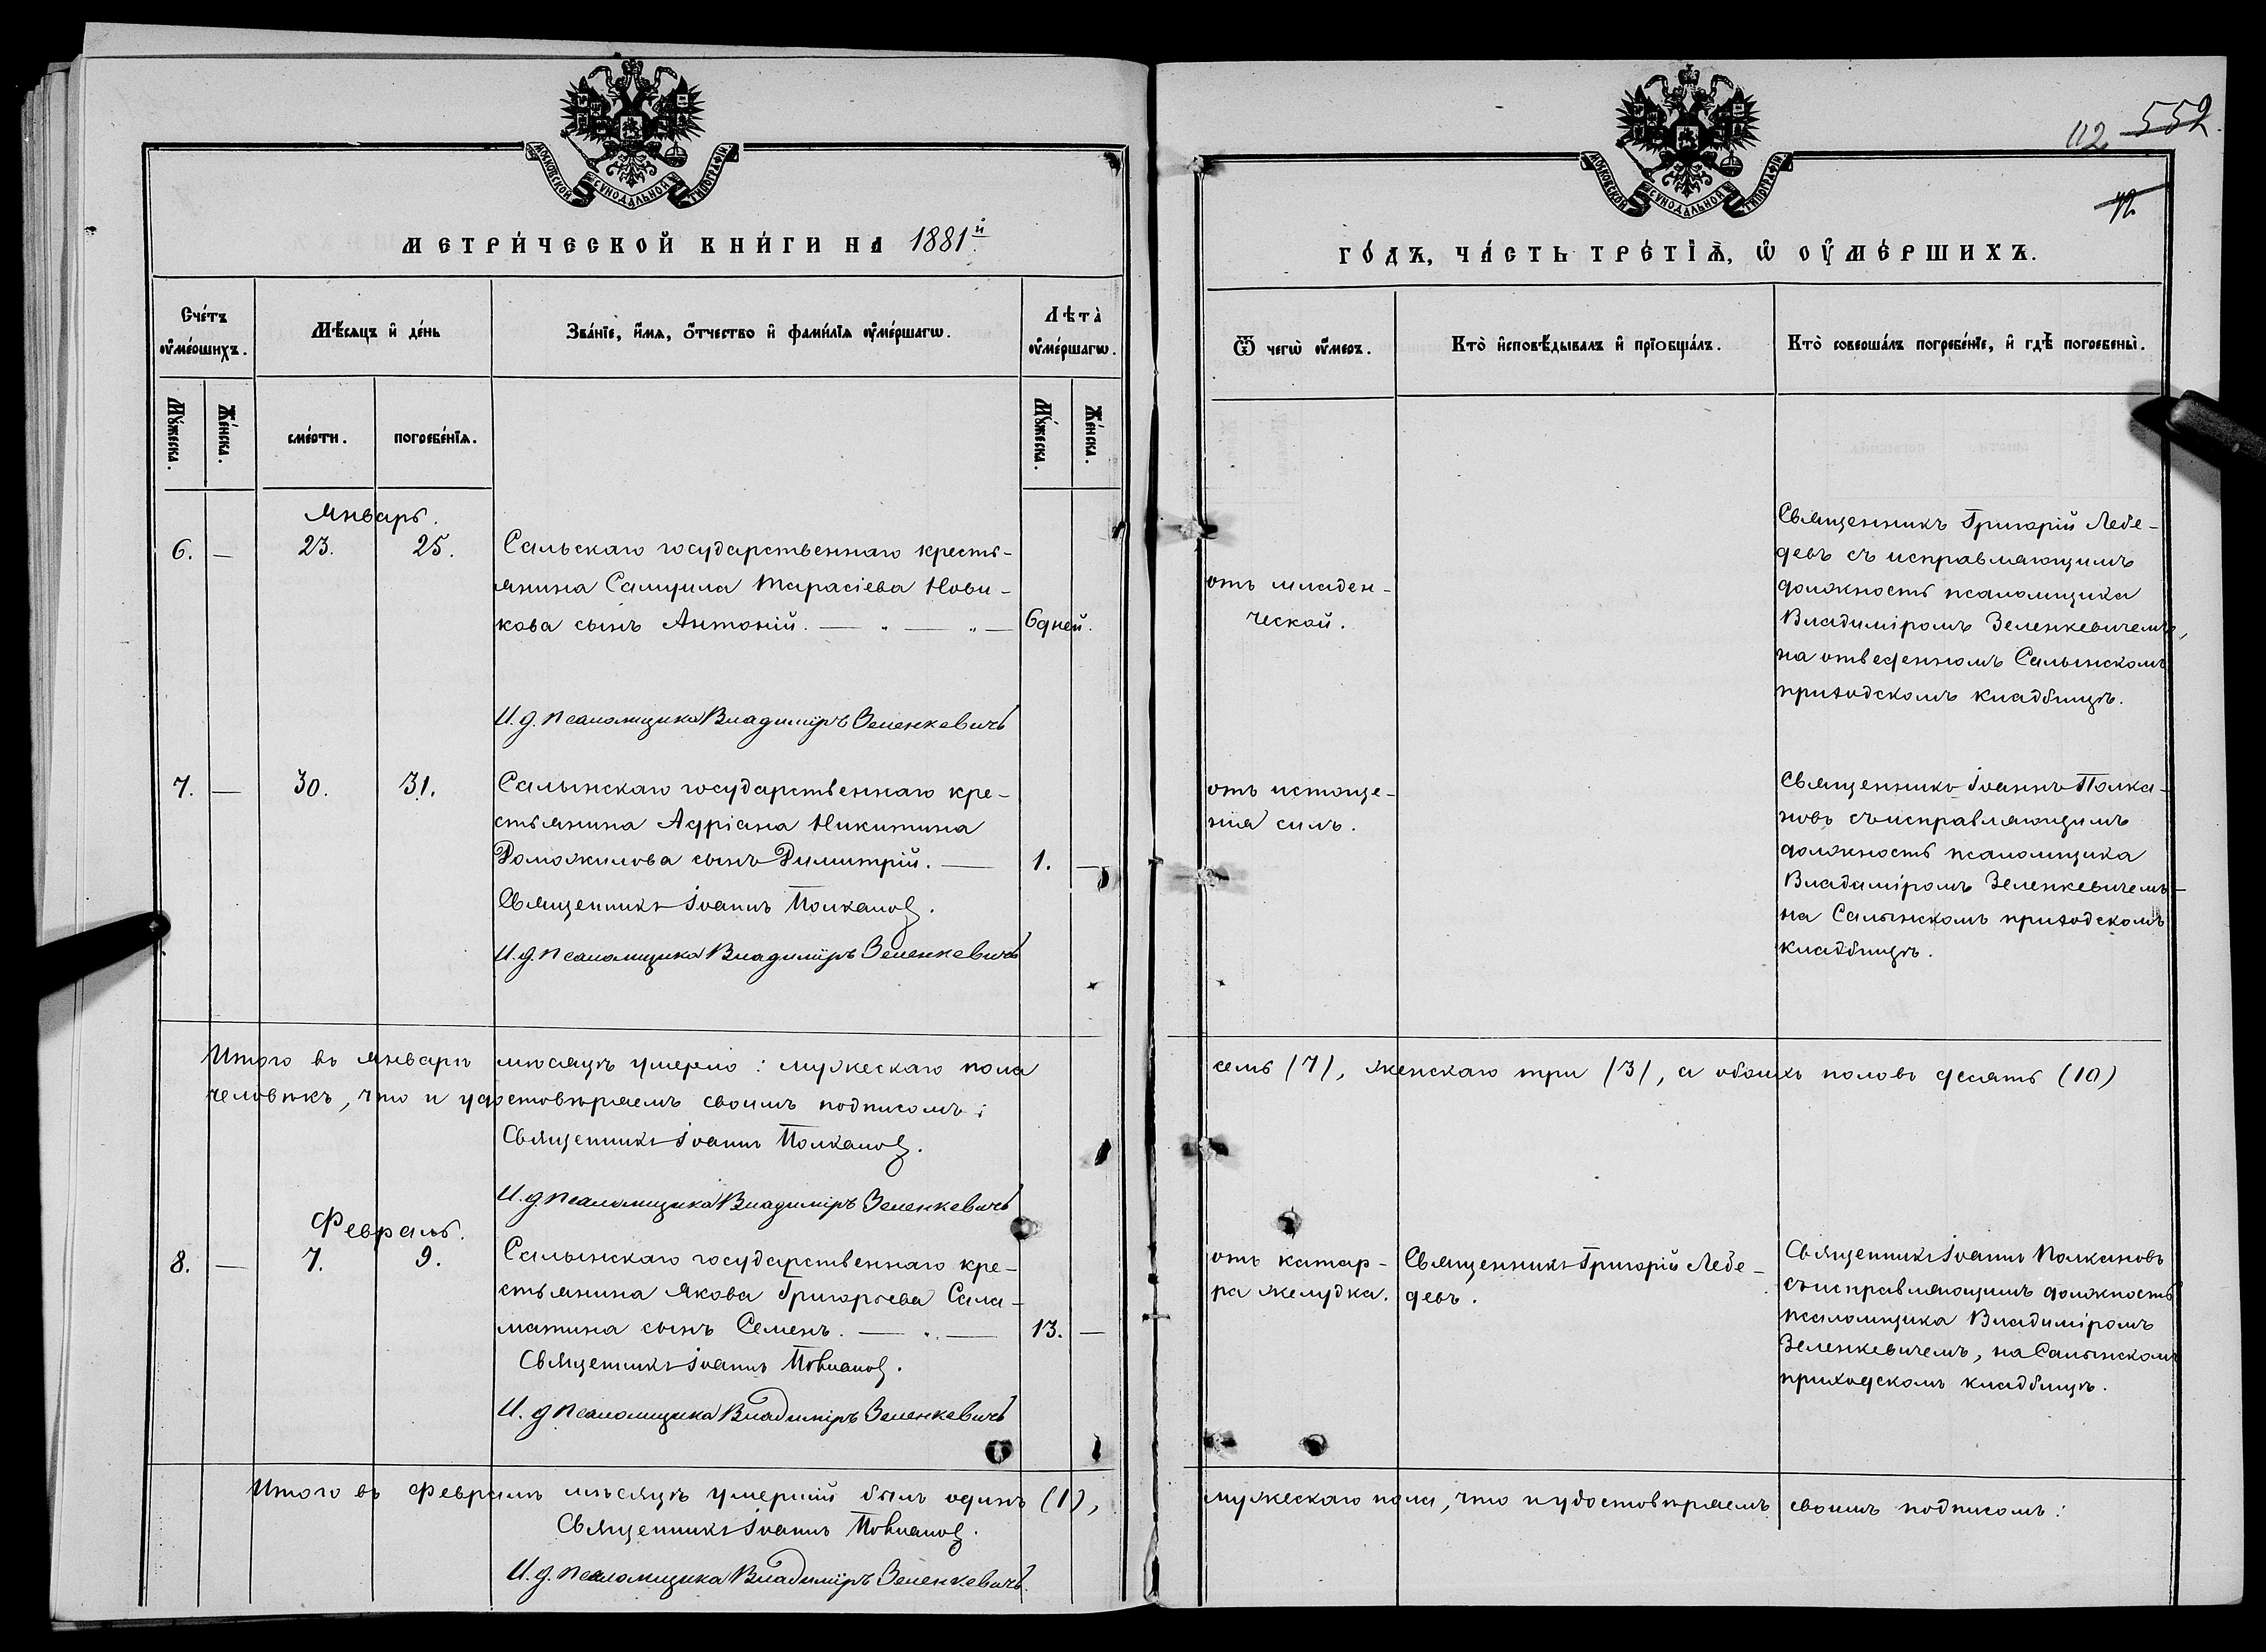 МОСКОВСКОЙ СѴНОДАЛЬНОЙ ТИПОГРАФІИ
МЕТРИ́ЧЕСКОЙ КНИ́ГИ НА 1881й
Сче́тъ ᲂу҆ме́ршихъ.
Мѣ́сяцъ и҆ де́нь
Зва́нїе, и҆́мя, ѻ҆́тчество и҆ фами́лїя ᲂу҆ме́ршагѡ.
Лѣта̀ ᲂу҆ме́ршагѡ.
Мꙋ́жеска.
Же́нска.
сме́рти.
погребе́нїѧ.
Мꙋ́жеска.
Же́нска.
Январь.
6. — 23. 25. Сальскаго государственнаго кресть-
янина Самуила Тарасіева Нови-
кова сынъ Антоній. — „ — „ — 6 дней.
И. д. псаломщика Владиміръ Зеленкевичъ
7. — 30. 31. Салынскаго государственнаго кре-
стьянина Адріана Никитина
Доможилова сынъ Димитрій. — 1. —
Священникъ Іоаннъ Полкановъ.
И. д. псаломщика Владиміръ Зеленкевичъ
Итого въ январѣ мѣсяцѣ умерло: мужескаго пола
человѣкъ, что и удостовѣряемъ своимъ подписомъ:
Священникъ Іоаннъ Полкановъ.
И. д. псаломщика Владиміръ Зеленкевичъ
Февраль.
8. — 7. 9. Салынскаго государственнаго кре-
стьянина Якова Григорьева Сала-
матина сынъ Семенъ. — „ — 13. —
Священникъ Іоаннъ Полкановъ.
И. д. псаломщика Владиміръ Зеленкевичъ
Итого въ Февралѣ мѣсяцѣ умершій былъ одинъ (1),
Священникъ Іоаннъ Полкановъ.
И. д. псаломщика Владиміръ Зеленкевичъ.
112 552
72
МОСКОВСКОЙ СѴНОДАЛЬНОЙ ТИПОГРАФІИ
ГО́ДЪ, ЧА́СТЬ ТРЕ́ТЇѦ, Ѡ҆ ОУ҆МЕ́РШИХЪ.
Ѿ чегѡ̀ ᲂу҆́меръ.
Кто̀ и҆сповѣ́дывалъ и҆ прїѻбща́лъ.
Кто̀ соверша́лъ погребе́нїе, и҆ гдѣ̀ погребены̀.
отъ младен-
ческой.
Священникъ Григорій Лебе-
девъ съ исправляющимъ
должность псаломщика
Владиміромъ Зеленкевичемъ,
на отведенномъ Салынскомъ
приходскомъ кладбищѣ.
отъ истоще-
нія силъ.
Священникъ Іоаннъ Полка-
новъ съ исправляющимъ
должность псаломщика
Владиміромъ Зеленкевичемъ –
на Салынскомъ приходскомъ
кладбищѣ.
семь (7), женскаго три (3), а обоихъ половъ десять (10)
отъ катар-
ра желудка.
Священникъ Григорій Лебе-
девъ.
Священникъ Іоаннъ Полкановъ
съ исправляющимъ должность
псаломщика Владиміромъ
Зеленкевичемъ, на Салынскомъ
приходскомъ кладбищѣ.
мужескаго пола, что и удостовѣряемъ своимъ подписомъ: